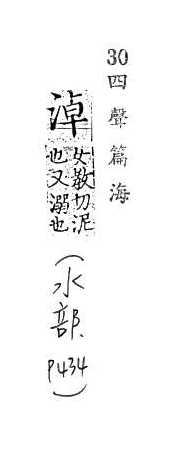 30四聲篇海
淖女教切泥
也又溺也
(水部P434)